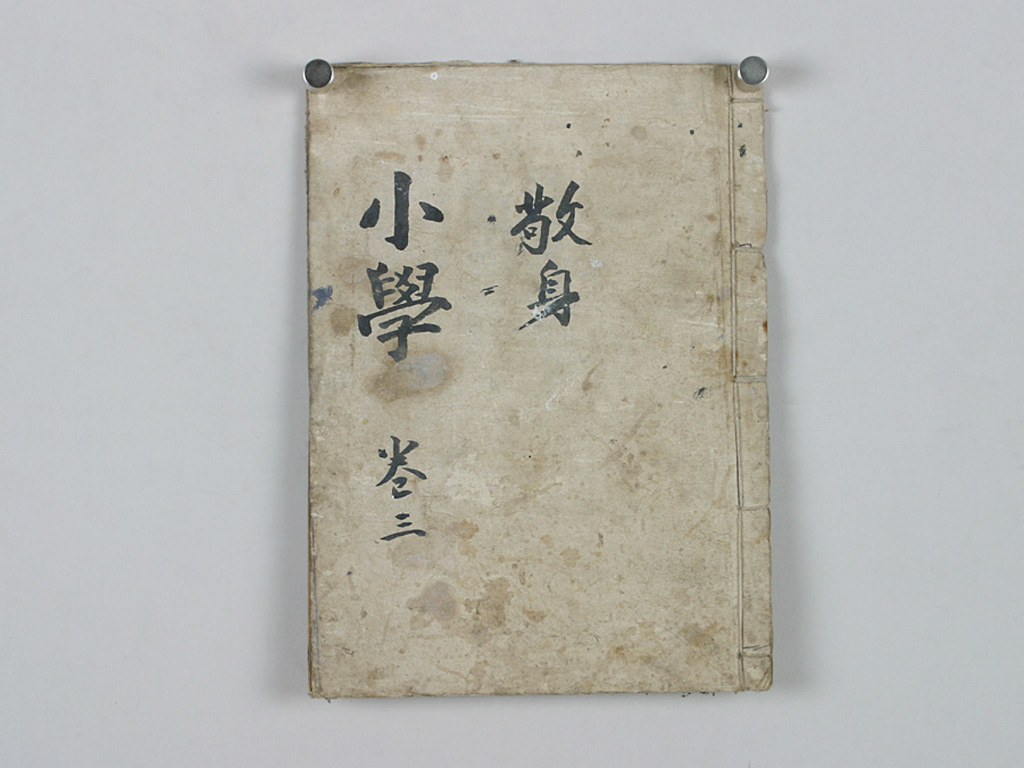 敬身
小學 卷三